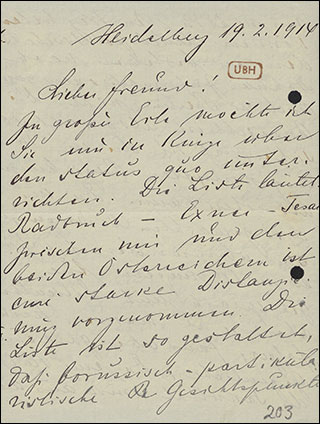 Heidelberg 19.2.1914
UBH
Lieber Freund!
In großer Eile möchte ich
Sie nur in Kürze über
den status quo unter-
richten. Die Liste lautet
Radbruch – Exner – Tesar
zwischen mir und den
beiden Österreichern ist
eine starke
nung vorgenommen. Die
Liste ist so gestaltet,
daß borussisch-partikula
ristische Gesichtspunkte
203